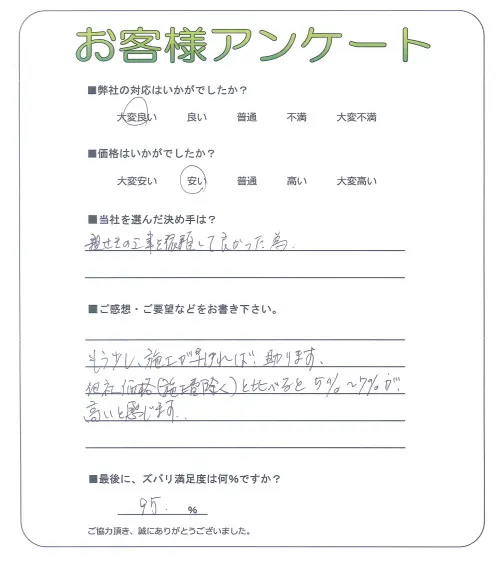 お客様アンケート
■弊社の対応はいかがでしたか？
大変良い 良い 普通 不満 大変不満
■価格はいかがでしたか？
大変安い 安い 普通 高い 大変高い
■当社を選んだ決め手は？
の工事を依頼して良かった為.
■ご感想・ご要望などをお書き下さい。
もう少し、施工が早ければ、助ります、
他社価格(施工費除く)と比べると5%〜7%が、
高いと感じます.
■最後に、ズバリ満足度は何%ですか？
95. %
ご協力頂き、誠にありがとうございました。